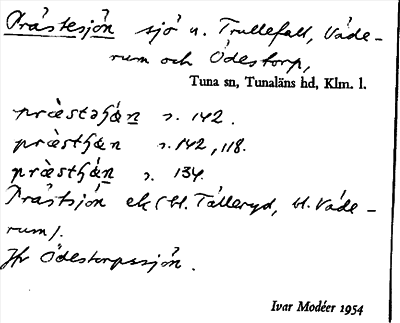 Prästesjön sjö u. Trullefall, Väde-
rum och Ödestorp,
Tuna sn, Tunaläns hd, Klm. l.
præ̀stəɧǿn s. 142.
præ̀stɧǿn s. 142, 118.
præ̀sthǿn s. 134.
Prästsjön ek (bl. Tälleryd, bl. Väde-
rum).
Jfr Ödestorpssjön.
Ivar Modéer 1954